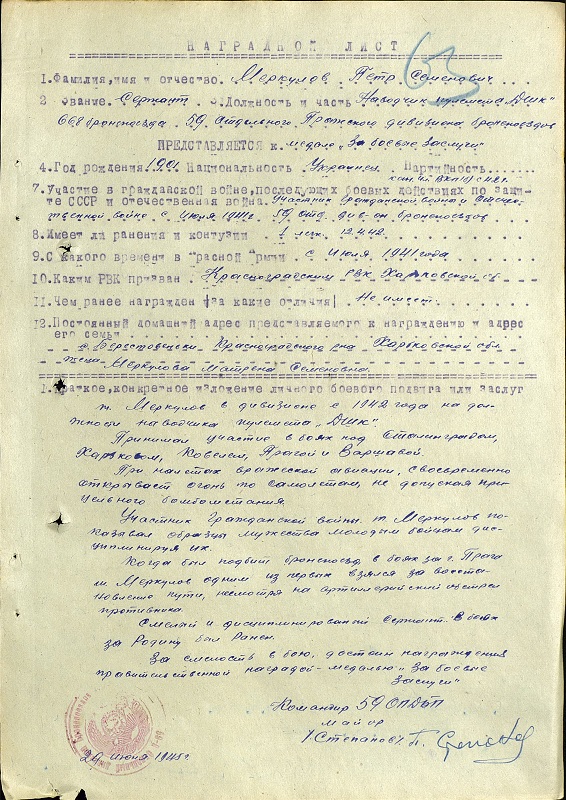 НАГРАДНОЙ ЛИСТ
63
1.Фамилия,имя и отчество. Меркулов Петр Семенович
2 Звание. Сержант. 3.Должность и часть Наводчик пулемета "ДШК"
668 бронепоезда 59 Отдельного Пражского дивизиона бронепоездов
ПРЕДСТАВЛЯЕТСЯ к медали "За боевые заслуги"
4.Год рождения 1901 Национальность Украинец Партийность
канд. ВКП(б) с 1942г.
7.Участие в гражданской войне,последующих боевых действиях по защи-
те СССР и отечественная война. Участник Гражданской войны и Отече-
ственной войне с Июня 1941г. 59 отд. див-он бронепоездов
8.Имеет ли ранения и контузии 1 легк. 12.4.42.
9.С какого времени в Красной Армии с июля 1941 года
10.Каким РВК призван. Красноградским РВК Харьковской обл.
11.Чем ранее награжден (за какие отличия) Не имеет.
12.Постоянный домашний адрес представляемого к награждению и адрес
его семьи
с. Берестовеньки Красноградского р-на Харьковской обл.
жена Меркулова Матрена Семеновна
1.Краткое,конкретное изложение личного боевого подвига или заслуг
т. Меркулов в дивизионе с 1942 года на дол-
жности наводчика пулемета "ДШК".
Принимал участие в боях под Сталинградом,
Харьковом, Ковелем, Прагой и Варшавой.
При налетах вражеской авиации, своевременно
открывает огонь по самолетам, не допуская при-
цельного бомбометания.
Участник Гражданской войны т. Меркулов по-
казывал образцы мужества молодым бойцам дис-
циплинируя их.
Когда был подбит бронепоезд в боях за г. Прага
т. Меркулов одним из первых взялся за восста-
новление пути, несмотря на артиллерийский обстрел
противника.
Смелый и дисциплинированный сержант. В боях
за Родину был ранен.
За смелость в бою, достоин награждения
правительственной наградой - медалью "За боевые
заслуги"
Командир 59 ОПДБП
майор
/Степанов/.
29 Июня 1945г.